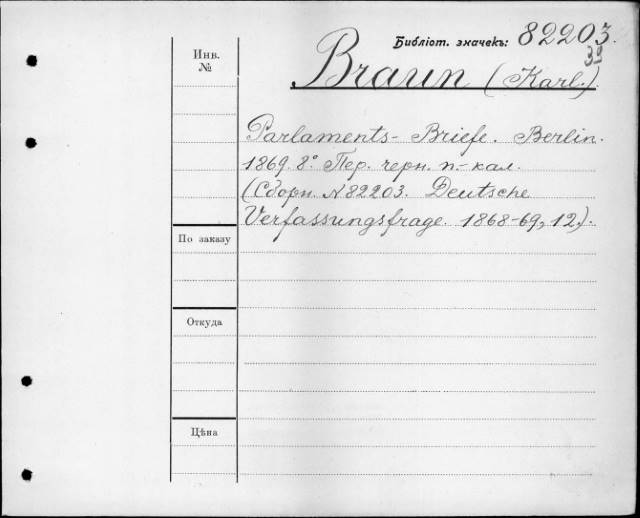 Библіот. значекъ: 82203.
33
Braun (Karl.)
Parlaments-Briefe. Berlin.
1869. 8°. Пер. черн. п.-кал.
(Сборн. № 82203. Deutsche
Verfassungsfrage. 1868-69, 12.).
Инв.
№
По заказу
Откуда
Цѣна